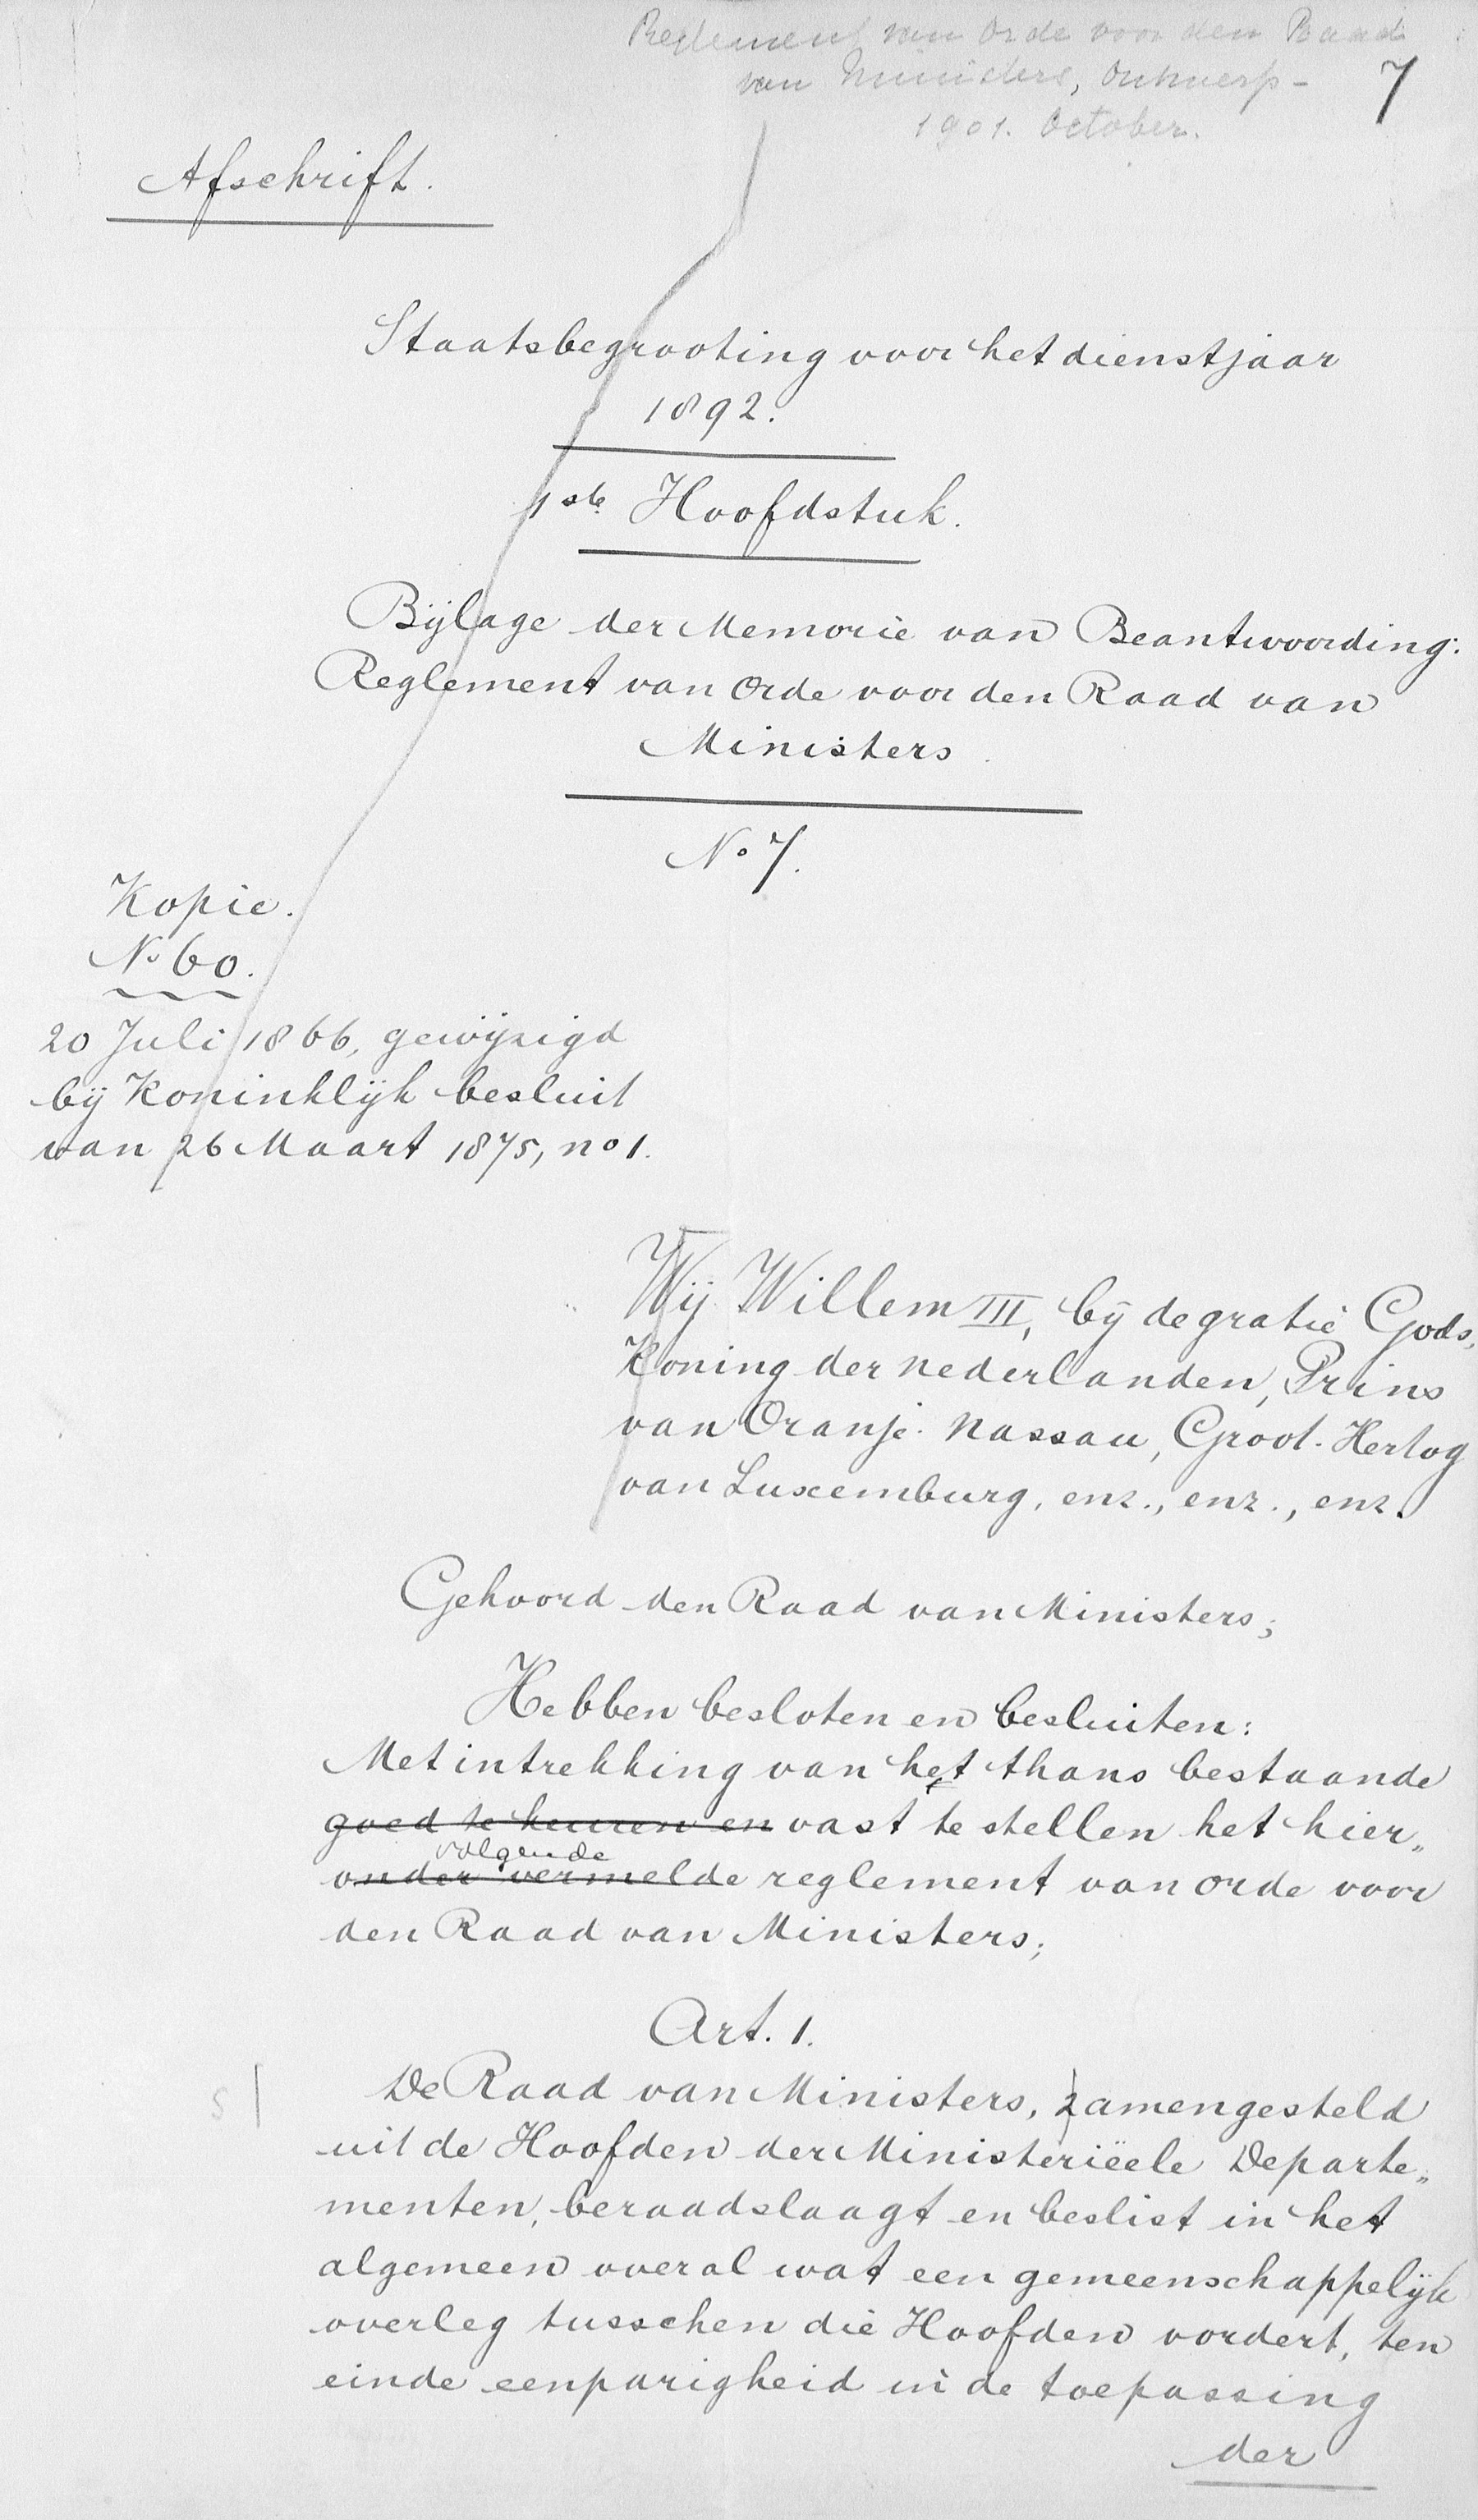 Reglement van Orde voor den Raad
van Ministers, Ontwerp-
1901. October.
7
Afschrift.
Staatsbegrooting voor het dienstjaar
1892.
1ste Hoofdstuk.
Bijlage der Memorie van Beantwoording:
Reglement van Orde voor den Raad van
Ministers.
No 7.
Kopie.
No 60.
20 Juli 1866, gewijzigd
bij Koninklijk besluit
van 26 Maart 1875, no 1.
Wij Willem III, bij de gratie Gods,
Koning der Nederlanden, Prins
van Oranje-Nassau, Groot-Hertog
van Luxemburg, enz., enz., enz.
Gehoord den Raad van Ministers;
Hebben besloten en besluiten:
Met intrekking van het thans bestaande
goed te keuren en vast te stellen het hier„
volgende
onder vermelde reglement van orde voor
den Raad van Ministers;
Art. 1.
s|
De Raad van Ministers, zamengesteld
uit de Hoofden der Ministerieele Departe„
menten, beraadslaagt en beslist in het
algemeen overal wat een gemeenschappelijk
overleg tusschen die Hoofden vordert, ten
einde eenparigheid in de toepassing
der